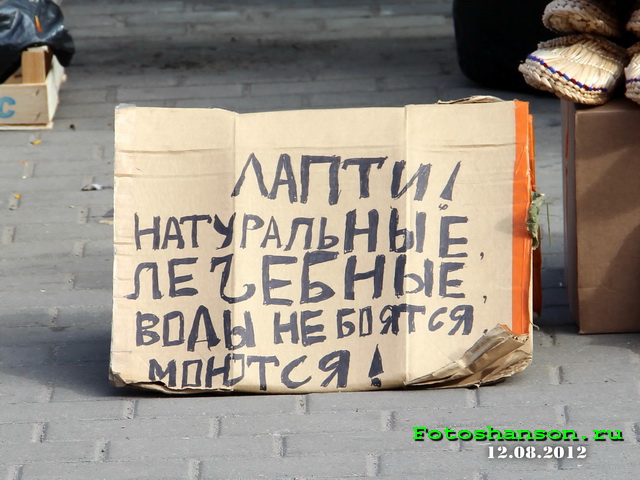 ЛАПТИ!
НАТУРАЛЬНЫЕ,
ЛЕЧЕБНЫЕ,
ВОДЫ НЕ БОЯТСЯ,
МОЮТСЯ!
Fotoshanson.ru
12.08.2012